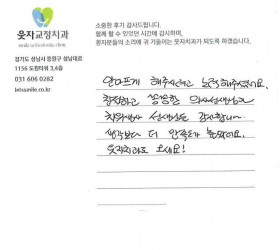 웃자교정치과
소중한 후기 감사드립니다.
함께 할 수 있었던 시간에 감사하며,
환자분들의 소리에 귀 기울이는 웃자치과가 되도록 하겠습니다.
경기도 성남시 중원구 성남대로
1156 도림타워 3,4층
031 606 0282
letssmile.co.kr
안아프게 해주시려고 노력해주셨네요.
친절하고 꼼꼼한 의사선생님과
치위생사 선생님들 감사합니다
생각보다 더 만족도가 높았네요.
웃자치과로 오세요!